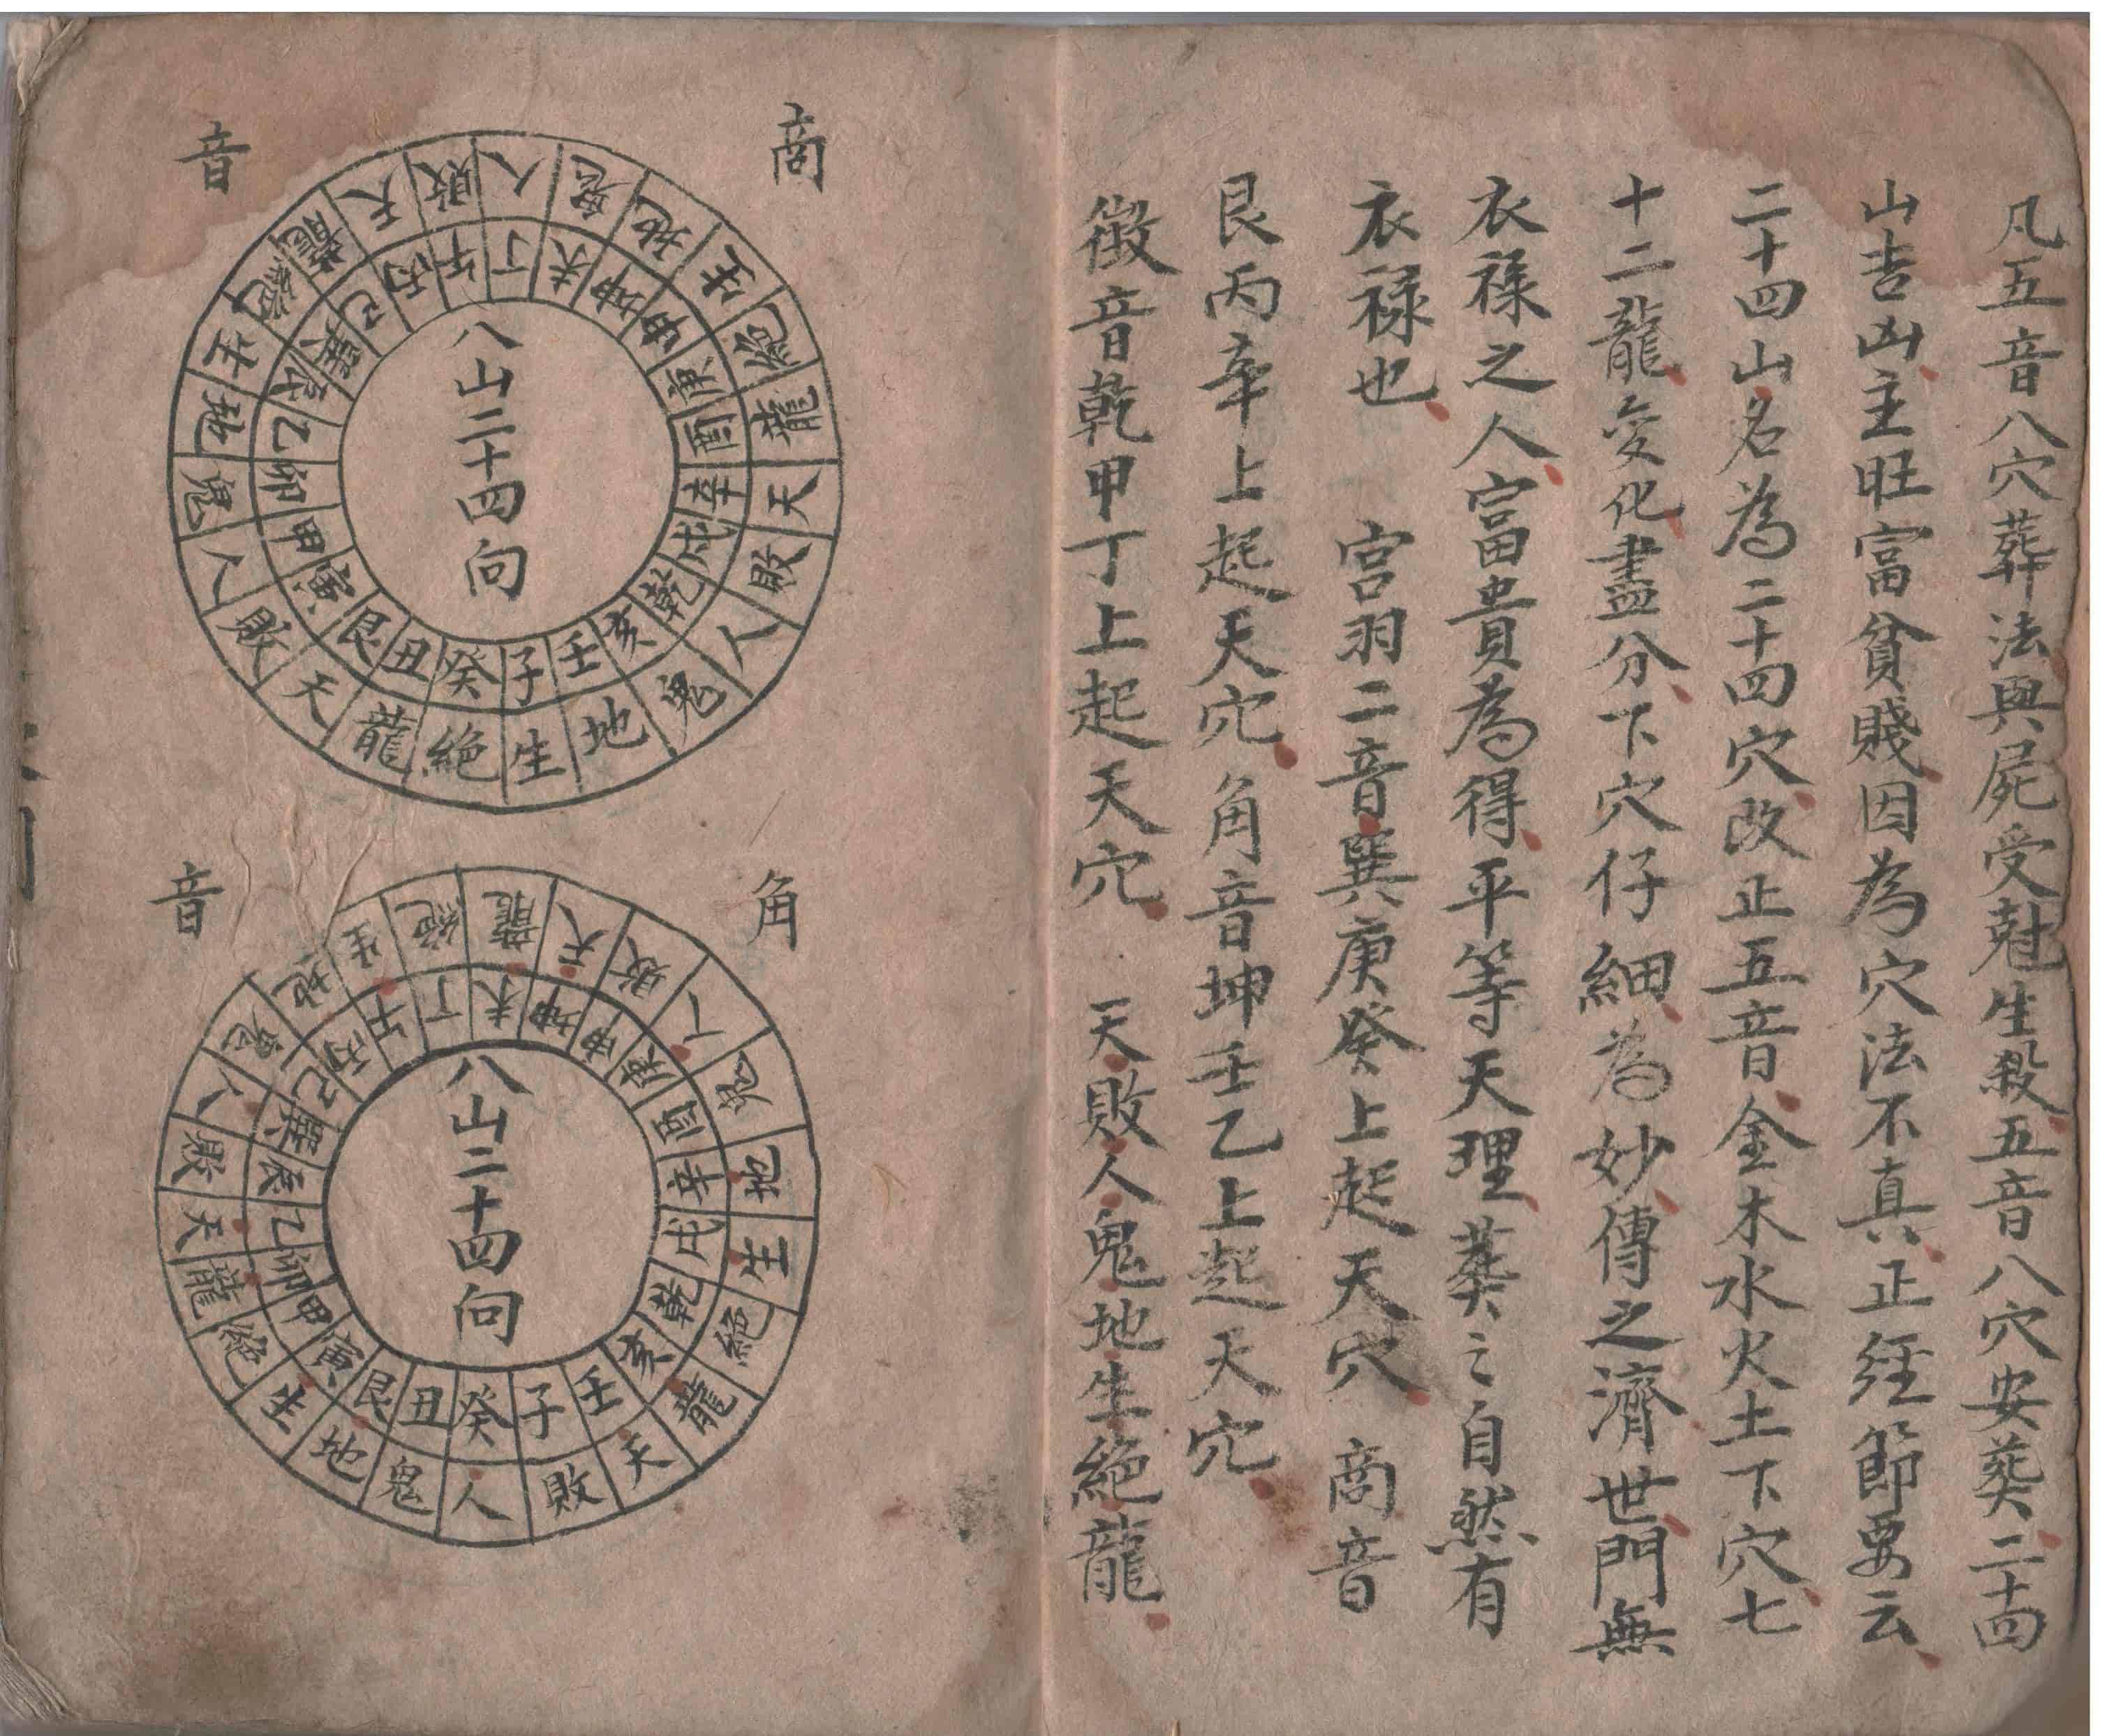 凡五音八穴葬法與屍受尅生殺五音八穴安葬二十四
山吉凶主旺富貧賤因為穴法不真正經節要云
二十四山名為二十四穴改正五音金木水火土下穴七
十二龍变化盡分下穴仔細為妙傳之濟世門無
衣祿之人富貴為得平等天理葬之自然有
衣祿也 宮羽二音巽庚癸上起天穴 商音
艮丙辛上起天穴角音坤壬乙上起天穴
徵音乾甲丁上起天穴 天敗人鬼地生絕龍
商音
八山二十四向
午丁未坤申庚酉辛戌乾亥壬子癸丑艮寅甲卯乙辰巽巳丙
敗人鬼地生絕龍天敗人鬼地生絕龍天敗人鬼地生絕龍天
角音
八山二十四向
午丁未坤申庚酉辛戌乾亥壬子癸丑艮寅甲卯乙辰巽巳丙
生絕龍天敗人鬼地生絕龍天敗人鬼地生絕龍天敗人鬼地